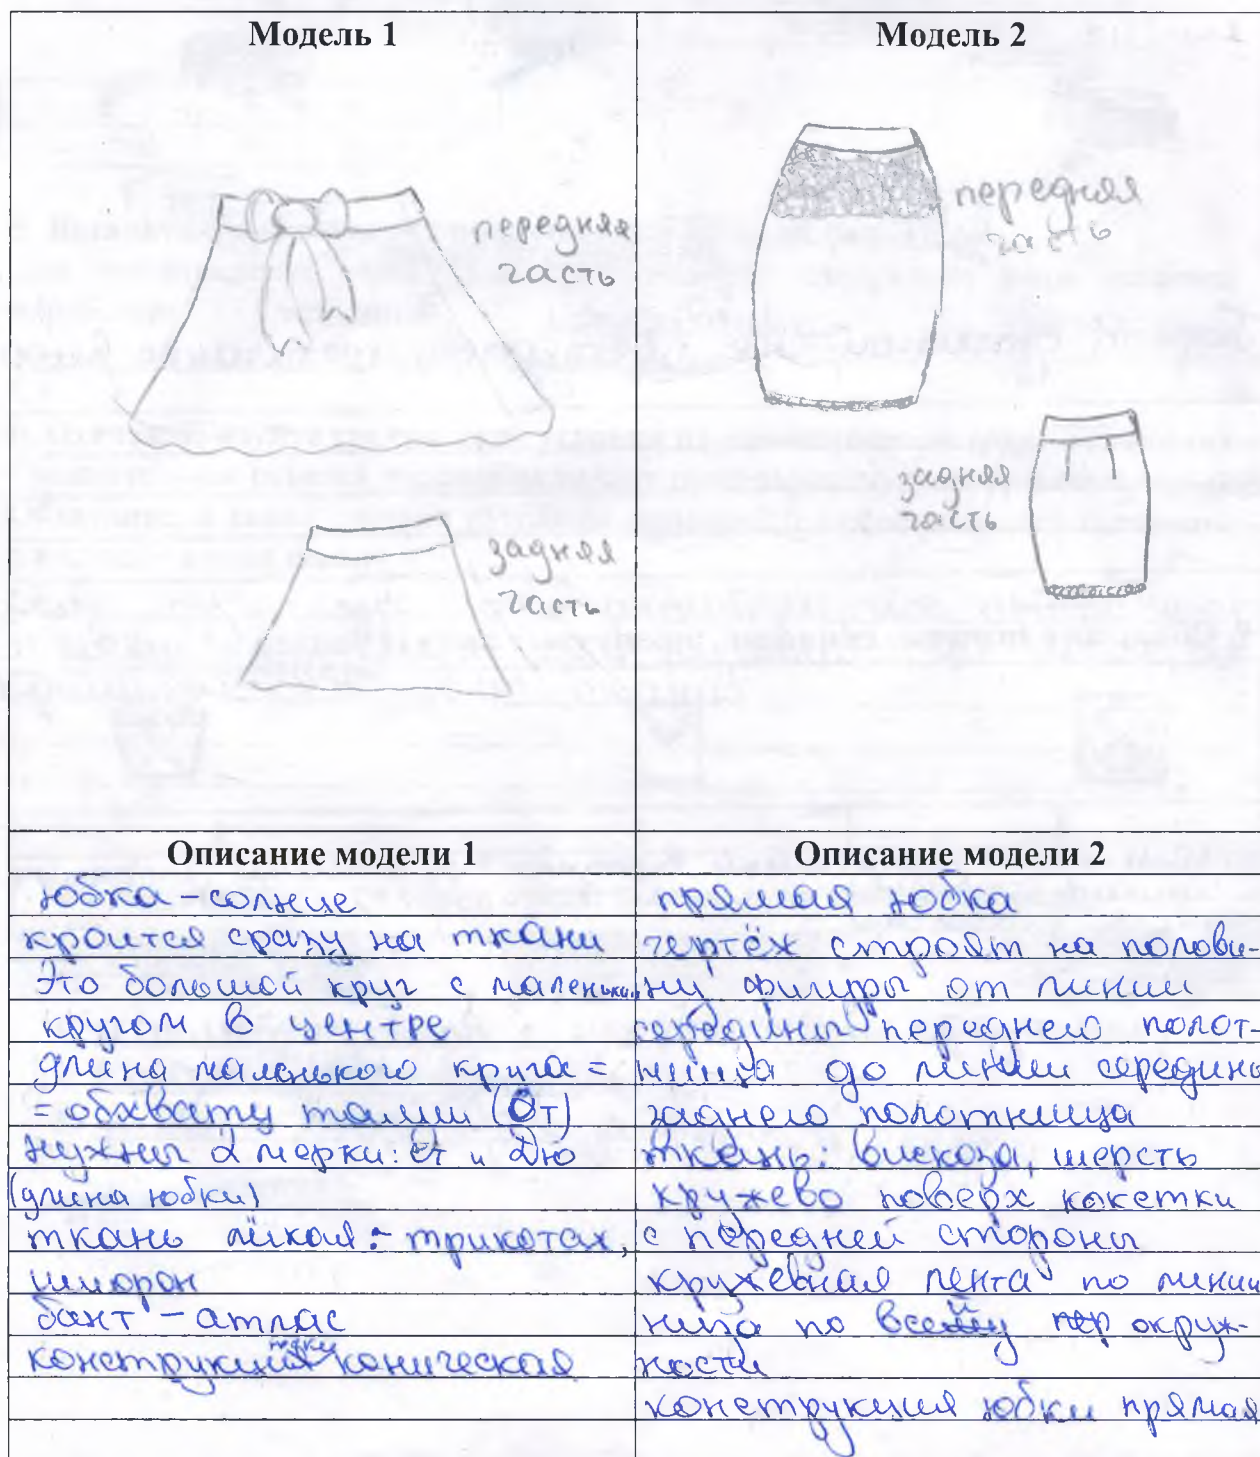 Модель 1
передняя
часть
задняя
часть
Модель 2
передняя
часть
задняя
часть
Описание модели 1
юбка-солнце
кроится сразу на ткани
Это большой круг с маленьким
кругом в центре
длина маленького круга =
= обхвату талии (От)
нужны 2 мерки: От и Дю
(длина юбки)
ткань лёгкая: трикотаж,
шифон
бант - атлас
конструкция юбки коническая
Описание модели 2
прямая юбка
чертёж строят на полови-
ну фигуры от линии
середины переднего полот-
нища до линии середины
заднего полотнища
ткань: вискоза, шерсть
кружево поверх кокетки
с передней стороны
кружевная лента по линии
низа по всей окруж-
ности
конструкция юбки прямая